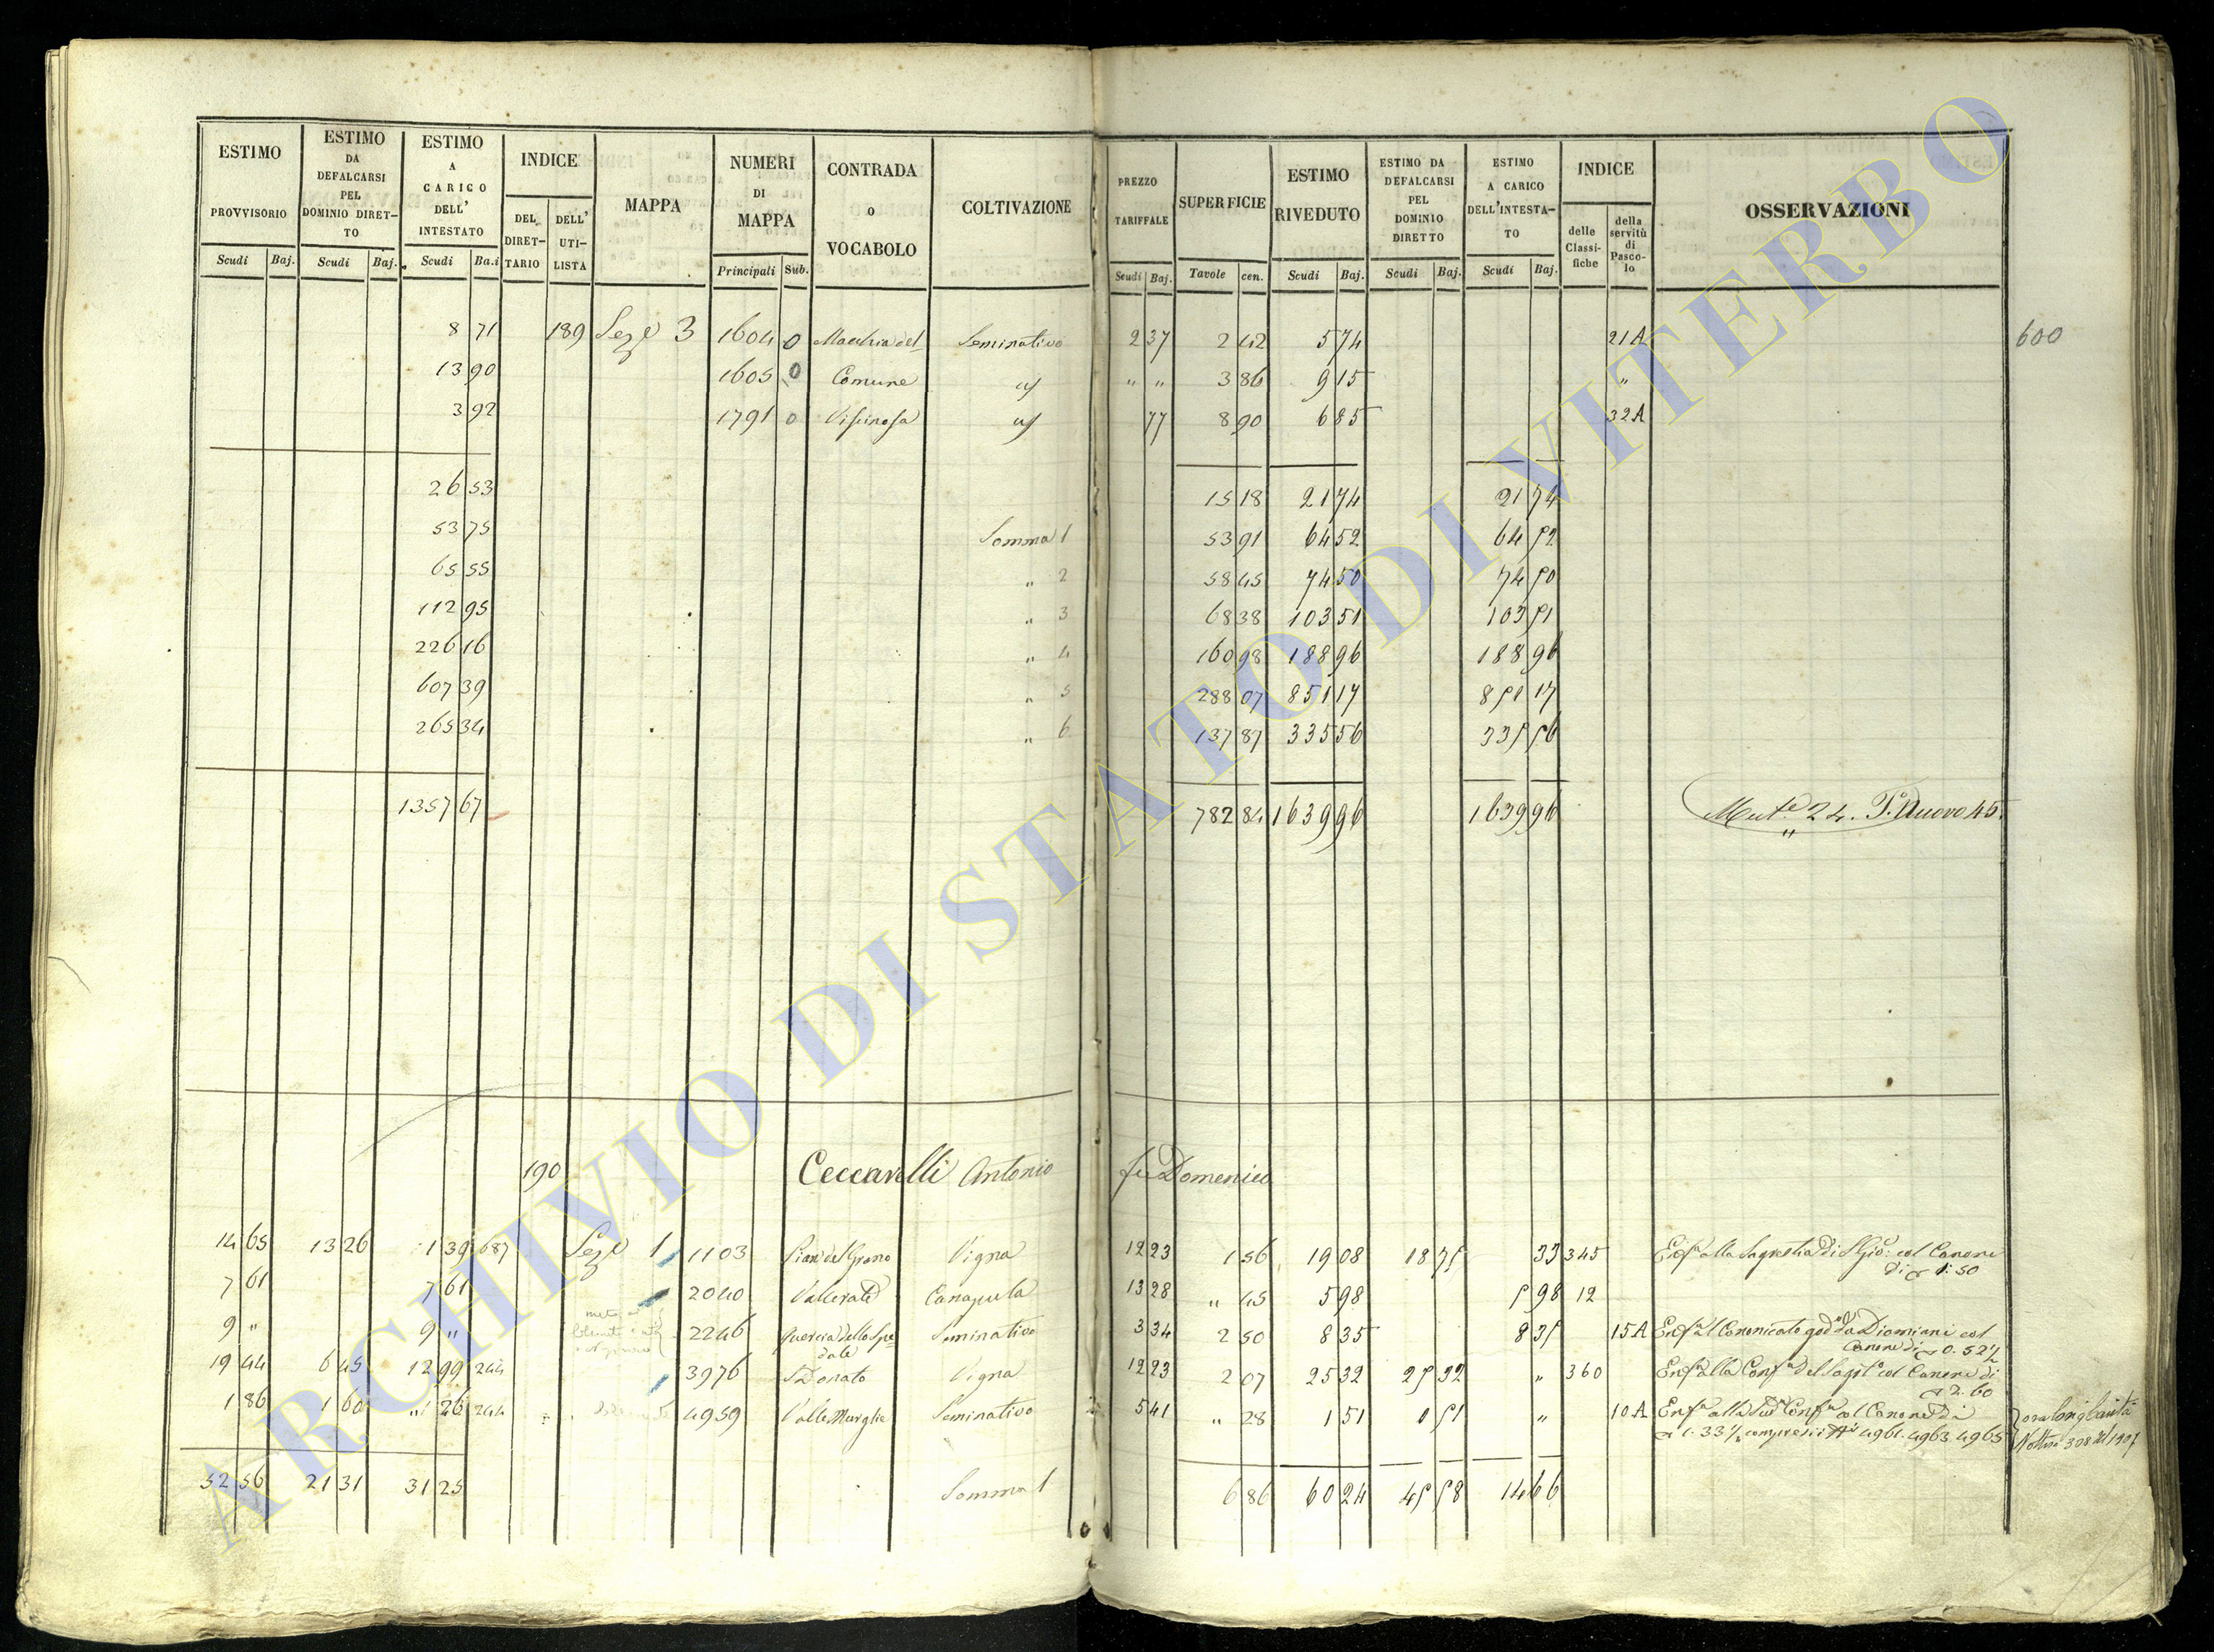 ESTIMO PROVVISORIO Scudi Baj. | ESTIMO DA DEFALCARSI PEL DOMINIO DIRET-TO Scudi Baj. | ESTIMO A CARICO DELL' INTESTATO Scudi Ba.i | INDICE DEL DIRET-TARIO DELL' UTI-LISTA | MAPPA | NUMERI DI MAPPA Principali Sub. | CONTRADA O VOCABOLO | COLTIVAZIONE | PREZZO TARIFFALE Scudi Baj. | SUPERFICIE Tavole cen. | ESTIMO RIVEDUTO Scudi Baj. | ESTIMO DA DEFALCARSI PEL DOMINIO DIRETTO Scudi Baj. | ESTIMO A CARICO DELL'INTESTA-TO Scudi Baj. | INDICE delle Classi-fiche della servitù di Pasco-lo | OSSERVAZIONI
8 71 189 Sez.e 3 1604 0 Macchia del Seminativo 2 37 2 42 5 74 21A 600
13 90 1605 0 Comune " " 3 86 9 15 "
3 92 1791 0 77 8 90 6 85 32A
26 53 15 18 21 74 21 74
53 75 Somma 1 53 91 64 52 64 52
65 55 " 2 58 45 74 50 74 50
112 95 " 3 68 38 103 51 103 51
226 16 " 4 160 98 188 96 188 96
607 39 " 5 288 07 851 17 851 17
265 34 " 6 137 87 335 56 335 56
1357 67 782 84 1639 96 1639 96 Mut.e 24. P. Nuovo 45
190 Ceccarelli Antonio fu Domenico
14 65 13 26 1 39 687 Sez.e 1 1103 Pian del Grano Vigna 12 23 1 56 19 08 18 75 33 345 Enf.a alla Sagrestia di S. Gio: col Canone
di 1:50
7 61 7 61 2040 Vallerate Canapula 13 28 " 45 5 98 5 98 12
9 " 9 " 2246 Quercia dello Spe Seminativo 3 34 2 50 8 35 8 35 15A Enf.a al Canonicato god. da Diomiani col
dale Canone di 0.52½
19 44 6 45 12 99 244 3976 S Donato Vigna 12 23 2 07 25 32 25 32 " 360 Enf.a alla Conf.a del col Canone di
2.60
1 86 1 60 " 26 244 4959 Valle Seminativo 5 41 " 28 1 51 1 51 " 10A Enf.a alla Conf.a col Canone di
1.33½ compresi i N.i 4961.4963.4965
ora Cong Carità
Voltura 308 del 1907
52 56 21 31 31 25 Somma 1 6 86 60 24 45 58 14 66
ARCHIVIO DI STATO DI VITERBO